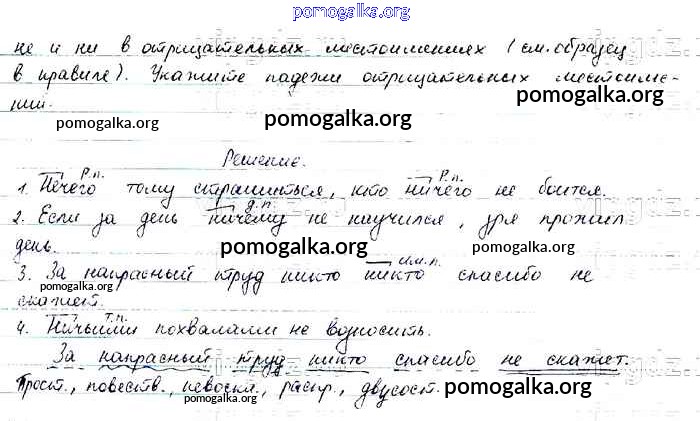 pomogalka.org
не и ни в отрицательных местоимениях (см. образец
в правиле). Укажите падежи отрицательных местоиме-
ний.
pomogalka.org pomogalka.org pomogalka.org
Решение.
Р.п. Р.п.
1. Нечего тому страшиться, кто ничего не боится.
Д.п.
2. Если за день ничему не научился, зря прожил
день. pomogalka.org pomogalka.org
им.п.
3. За напрасный труд никто никто спасибо не
скажет.
Т.п.
4. Ничьими похвалами не возносить.
За напрасный труд никто спасибо не скажет.
Прост., повеств., невоскл., распр., двусост. pomogalka.org
pomogalka.org